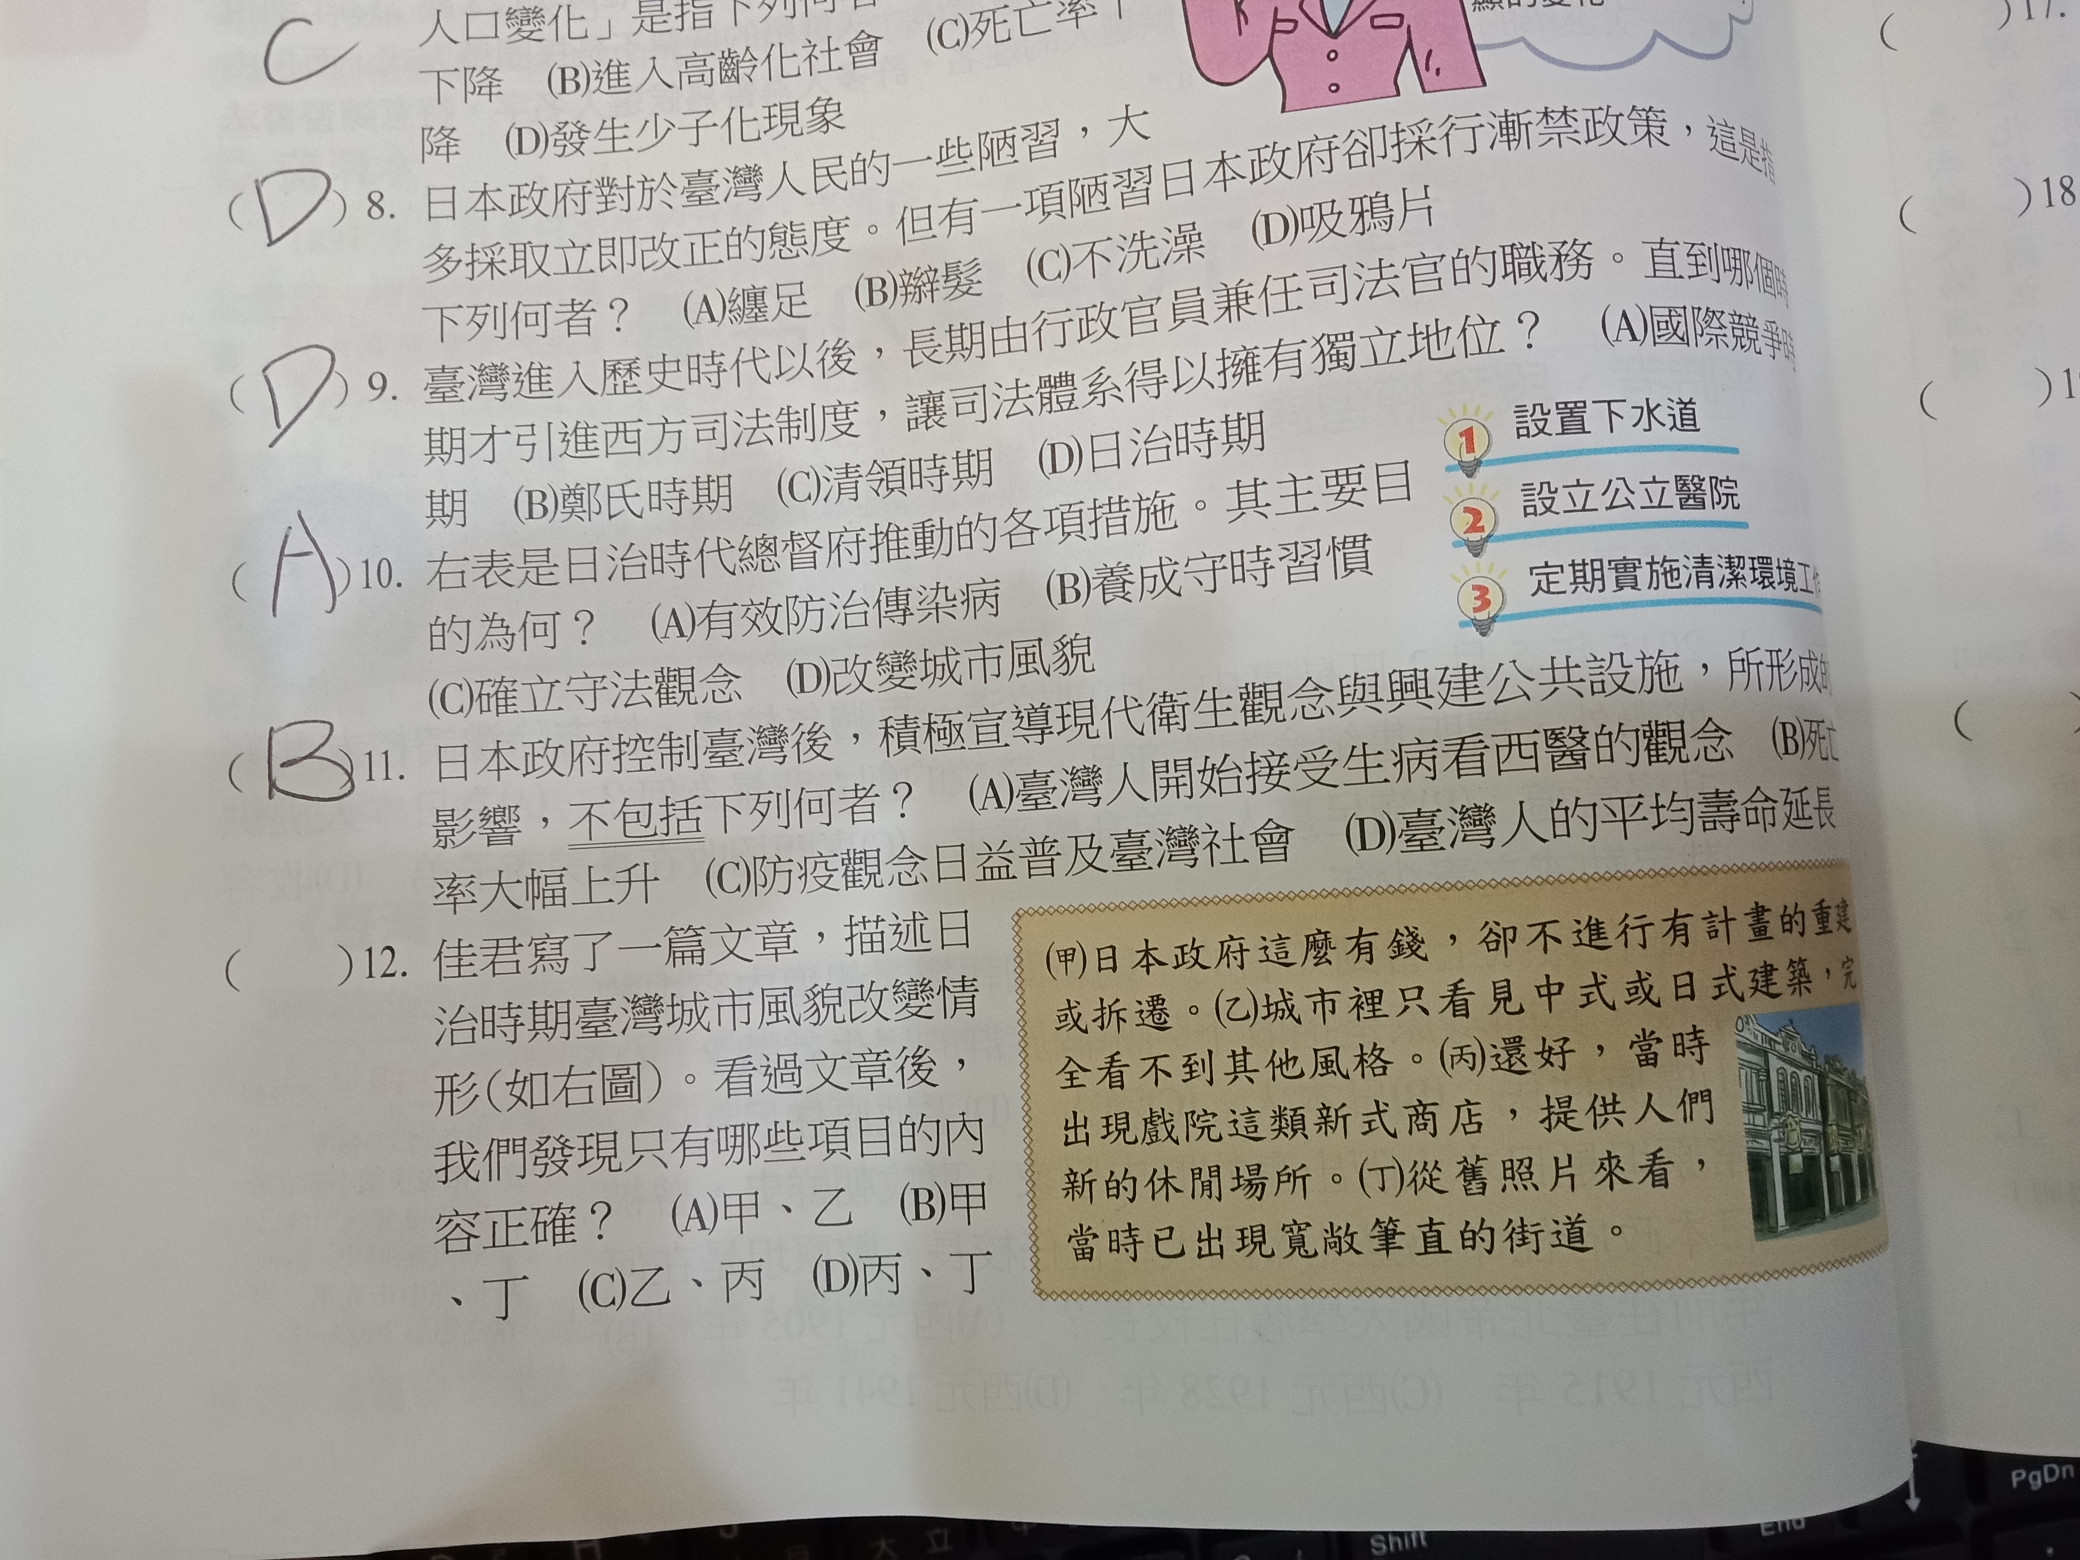 人口變化」是指下列何者
C
下降 (B)進入高齡化社會 (C)死亡率下
降 (D)發生少子化現象
(D)8. 日本政府對於臺灣人民的一些陋習，大
多採取立即改正的態度。但有一項陋習日本政府卻採行漸禁政策，這是指
下列何者？ (A)纏足 (B)辮髮 (C)不洗澡 (D)吸鴉片
(D)9. 臺灣進入歷史時代以後，長期由行政官員兼任司法官的職務。直到哪個時
期才引進西方司法制度，讓司法體系得以擁有獨立地位？ (A)國際競爭時
期 (B)鄭氏時期 (C)清領時期 (D)日治時期
(A)10. 右表是日治時代總督府推動的各項措施。其主要目
的為何？ (A)有效防治傳染病 (B)養成守時習慣
(C)確立守法觀念 (D)改變城市風貌
1 設置下水道
2 設立公立醫院
3 定期實施清潔環境工作
(B)11. 日本政府控制臺灣後，積極宣導現代衛生觀念與興建公共設施，所形成的
影響，不包括下列何者？ (A)臺灣人開始接受生病看西醫的觀念 (B)死亡
率大幅上升 (C)防疫觀念日益普及臺灣社會 (D)臺灣人的平均壽命延長
( )12. 佳君寫了一篇文章，描述日
治時期臺灣城市風貌改變情
形(如右圖)。看過文章後，
我們發現只有哪些項目的內
容正確？ (A)甲、乙 (B)甲
、丁 (C)乙、丙 (D)丙、丁
(甲)日本政府這麼有錢，卻不進行有計畫的重建
或拆遷。(乙)城市裡只看見中式或日式建築，完
全看不到其他風格。(丙)還好，當時
出現戲院這類新式商店，提供人們
新的休閒場所。(丁)從舊照片來看，
當時已出現寬敞筆直的街道。
( )17.
( )18
( )1
( )
Shift
End
PgDn